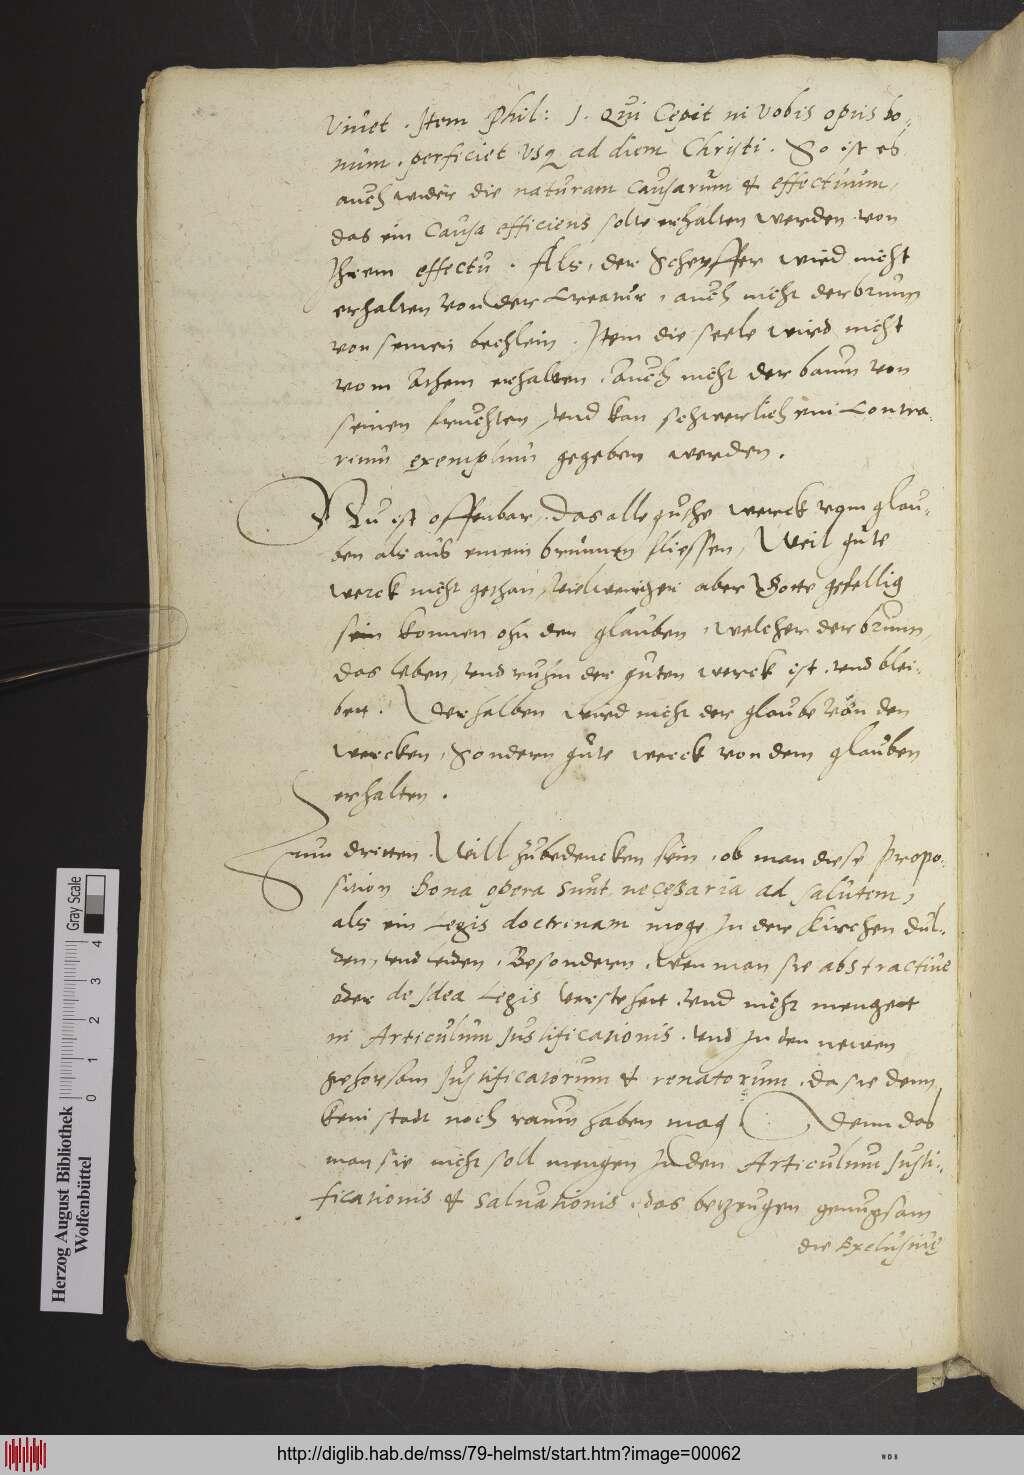 Viuet. Item Phil: 1. Qui Cępit in vobis opus bo-
num. perficiet vsq ad diem Christi. So ist es
auch wider die naturam causarum & effectuum,
das ein Causa efficiens solte erhalten werden von
Ihrem effectu. Als, der Schepffer wird nicht
erhalten von der Creatur, auch nicht der brunn
von seinem bechlein. Item die seele wird nicht
vom Athem erhalten. Auch nicht der baum von
seinen fruchten, Vnd kan schwerlich ein Contra-
rium exemplum gegeben werden.
Nu ist offenbar, das alle gutte werck vom glau-
ben als aus einem brunnen fliessen, Weil gute
werck nicht gethan, Vielweniger aber Gotte gefellig
sein konnen ohn den glauben, welcher der brunn,
das leben, vnd ruhm der guten werck ist, vnd blei-
bett. Derhalben wird nicht der glaube von den
wercken, Sondern gute werck von dem glauben
erhalten.
Zum dritten. Will zubedencken sein, ob man diese Propo-
sition Bona opera sunt necessaria ad salutem,
als ein Legis doctrinam moge In der Kirchen dul-
den, vnd leiden, Besonderen, wen man sie abstractiue
oder de Idea Legis verstehett, Vnd nicht mengett
in Articulum Iustificationis, vnd In den newen
gehorsam Iustificatorum & renatorum, da sie denn
kein stadt noch raum haben mag. Denn das
man sie nicht soll mengen In den Articulum Iusti-
ficationis & saluationis, das betzeugen genugsam
die Exclusiue
Herzog August Bibliothek
Wolfenbüttel
0 1 2 3 4
Gray Scale
http://diglib.hab.de/mss/79-helmst/start.htm?image=00062